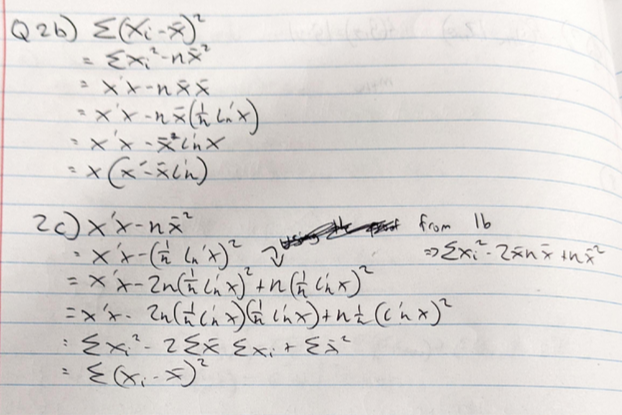 Q2b) Σ(xᵢ-x̄)²
= Σxᵢ²-nx̄²
= x'x-nx̄x̄
= x'x-nx̄(1/n ιₙ'x)
= x'x-x̄ιₙ'x
= x(x'-x̄ιₙ')
2c) x'x-nx̄² from 1b
= x'x-(1/n ιₙ'x)² ⇒Σxᵢ²-2x̄nx̄+nx̄²
= x'x-2n(1/n ιₙ'x)²+n(1/n ιₙ'x)²
= x'x- 2n(1/n ιₙ'x)(1/n ιₙ'x)+n 1/n (ιₙ'x)²
= Σxᵢ²-2Σx̄Σxᵢ+Σx̄²
= Σ(xᵢ-x̄)²